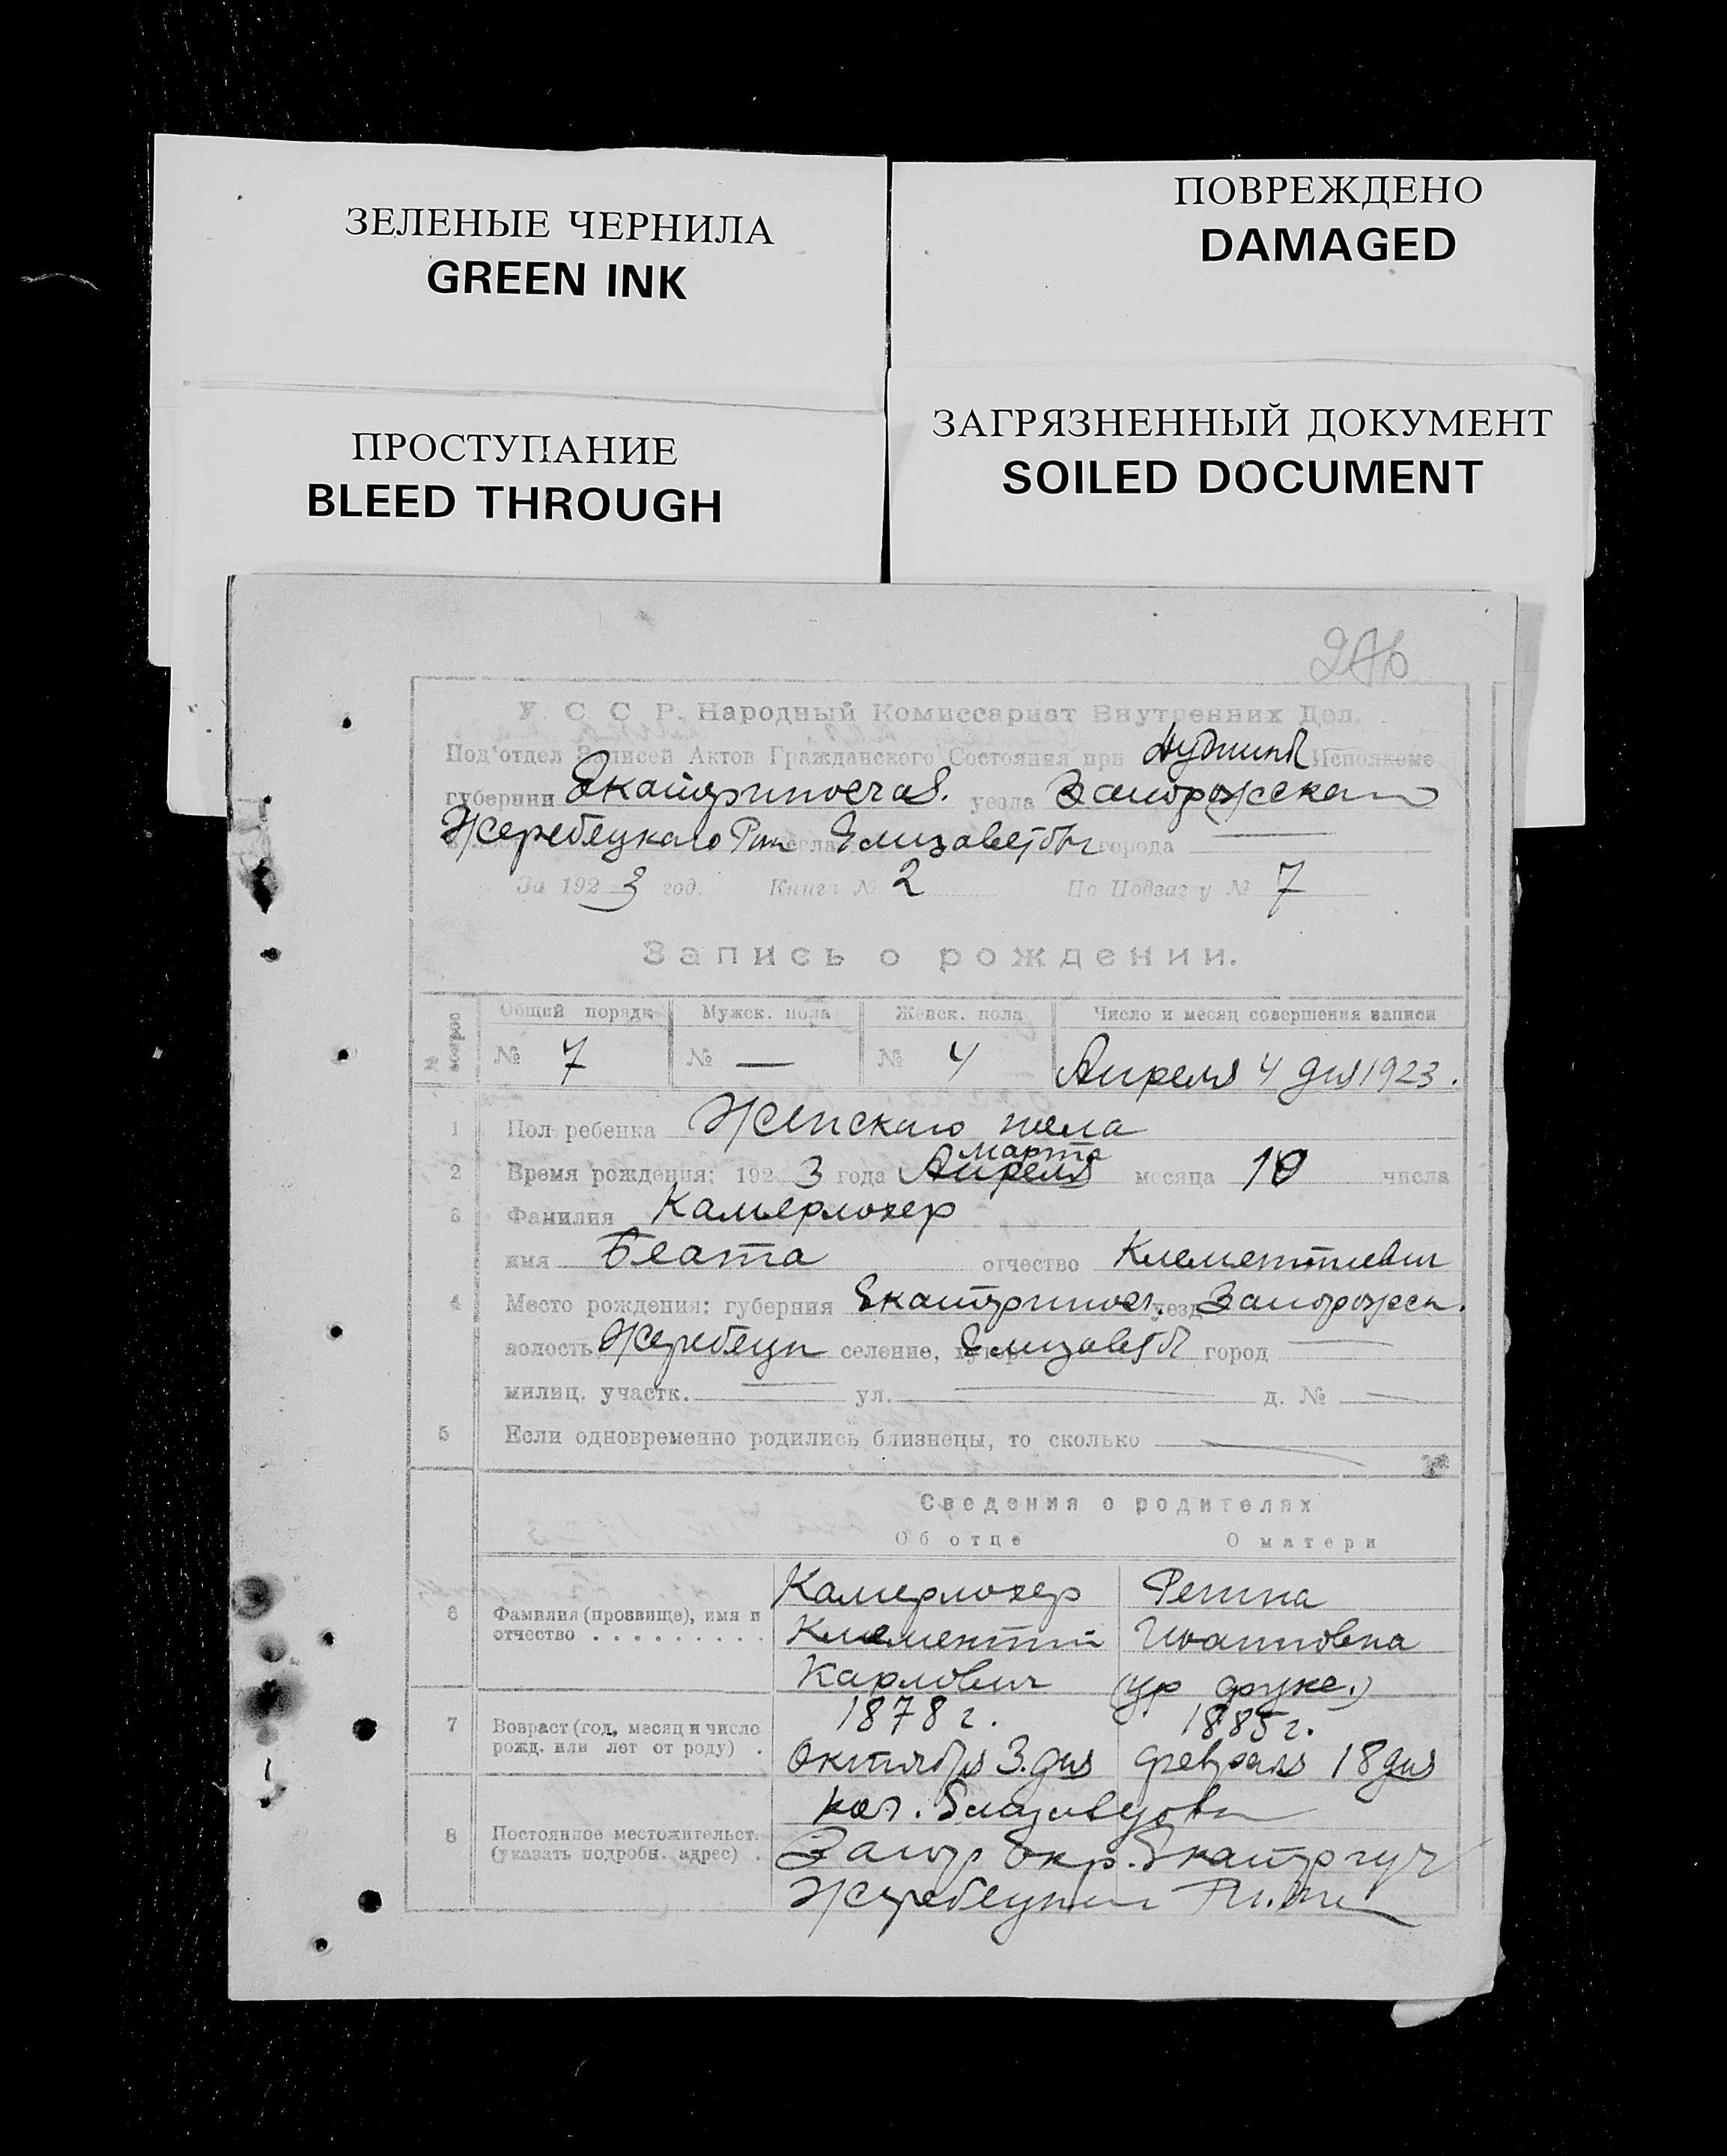 ЗЕЛЕНЫЕ ЧЕРНИЛА
GREEN INK
ПОВРЕЖДЕНО
DAMAGED
ПРОСТУПАНИЕ
BLEED THROUGH
ЗАГРЯЗНЕННЫЙ ДОКУМЕНТ
SOILED DOCUMENT
У. С. С. Р. Народный Комиссариат Внутренних Дел.
Под'отдел Записей Актов Гражданского Состояния при Исполкоме
губернии Екатеринослав. уезда Запорожскаго
Жеребецкаго Рай села Елизаветовк города —
За 1923 год. Книга № 2 По Подзагсу № 7
Запись о рождении.
Общий порядк Мужск. пола Женск. пола Число и месяц совершения записи
№ 7 № — № 4 Апреля 4 дня 1923.
1 Пол ребенка Женскаго пола
марта
2 Время рождения: 1923 года Апреля месяца 10 числа
3 Фамилия Камерлохер
имя Беата отчество Клементиевич
4 Место рождения: губерния Екатеринос. уезд Запорожск.
волость Жеребецк селение, хутор Елизавет город —
милиц. участк. — ул. — д. № —
5 Если одновременно родились близнецы, то сколько —
Сведения о родителях
Об отце О матери
6 Фамилия (прозвище), имя и отчество . . . . . . . . .
Камерлохер Регина
Клементий Ивановна
Карлович (ур фукс.)
7 Возраст (год, месяц и число рожд. или лет от роду) .
1878 г. 1885 г.
Октября 3. дня февраля 18 дня
8 Постоянное местожительст. (указать подробн. адрес) .
кол. Елизаветовка
Запор Окр. Екатер губ